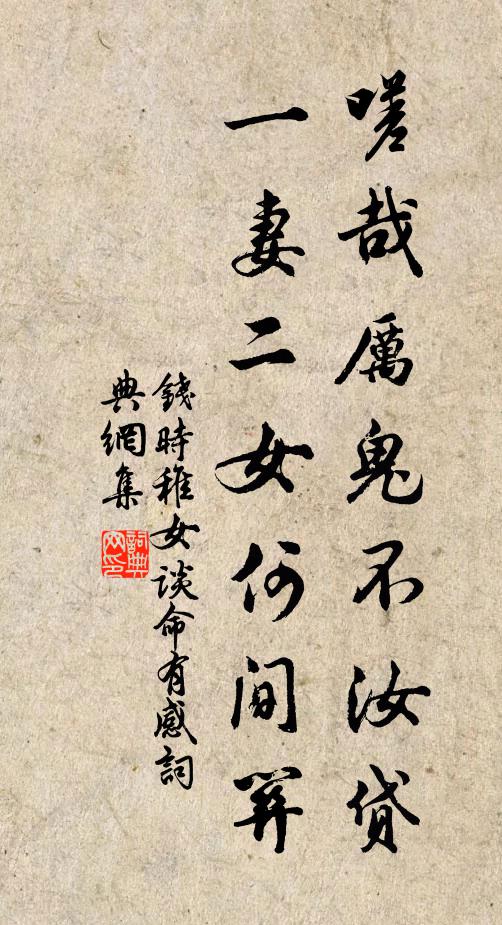 嗟哉厲鬼不汝貸
一妻二女何間笄
錢時稚女談命有感詞
典網集
詞典網印